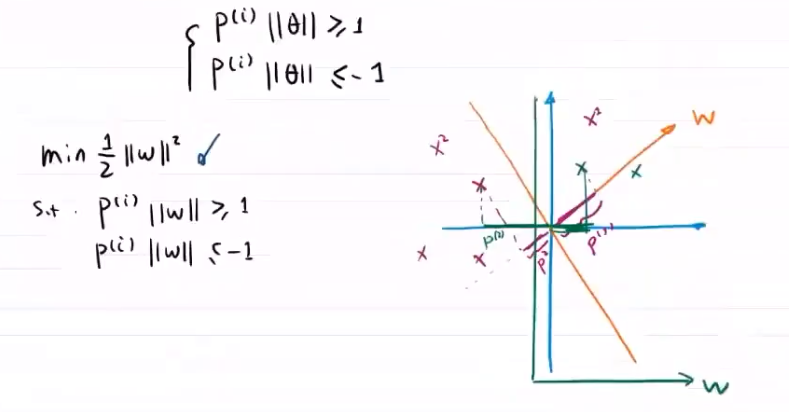 p⁽ⁱ⁾ ||θ|| ≥ 1
p⁽ⁱ⁾ ||θ|| ≤ -1
min 1/2 ||w||² ✓
s.t. p⁽ⁱ⁾ ||w|| ≥ 1
p⁽ⁱ⁾ ||w|| ≤ -1
x²
w
x²
x
x
x
p⁽¹⁾
x
x
w